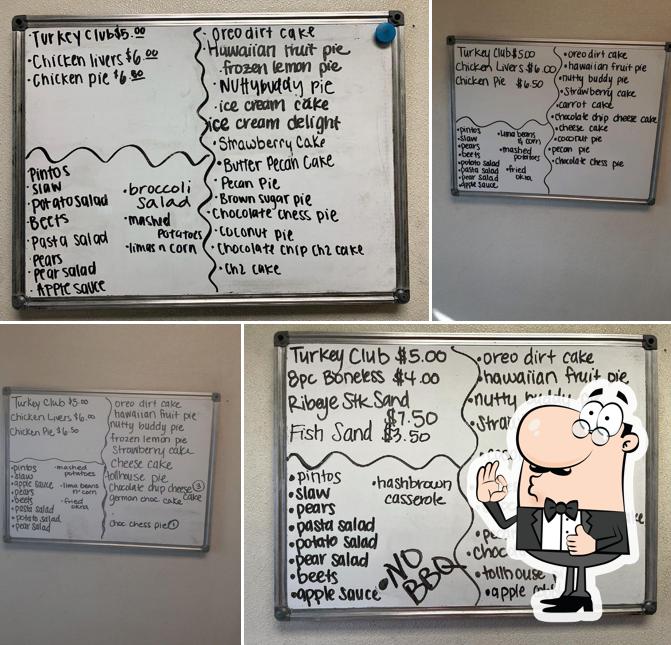 Turkey Club $5.00
Chicken livers $6.00
Chicken pie $6.50
Pintos
Slaw
Potato Salad
Beets
Pasta salad
Pears
Pear salad
Apple sauce
broccoli
salad
mashed
potatoes
limas n corn
Oreo dirt cake
Hawaiian fruit pie
frozen lemon pie
Nuttybuddy pie
ice cream cake
ice cream delight
Strawberry Cake
Butter Pecan Cake
Pecan Pie
Brown sugar pie
Chocolate chess pie
coconut pie
Chocolate chip ch2 cake
Ch2 cake
Turkey Club $5.00
Chicken Livers $6.00
Chicken Pie $6.50
pintos
slaw
pears
beets
potato salad
pasta salad
pear salad
apple sauce
lima beans
n corn
mashed
potatoes
fried
okra
oreo dirt cake
hawaiian fruit pie
nutty buddy pie
strawberry cake
carrot cake
chocolate chip cheese cake
cheese cake
coconut pie
pecan pie
chocolate chess pie
Turkey Club $5.00
Chicken Livers $6.00
Chicken Pie $6.50
pintos
slaw
apple sauce
pears
beets
pasta salad
potato salad
pear salad
mashed
potatoes
lima beans
n corn
fried
okra
oreo dirt cake
hawaiian fruit pie
nutty buddy pie
frozen lemon pie
Strawberry cake
Cheese cake
tollhouse pie
Chocolate chip cheese 3
cake
german choc. cake
choc chess pie 1
Turkey Club $5.00
8pc Boneless $4.00
Ribeye Stk Sand
$7.50
Fish Sand $3.50
pintos
slaw
pears
pasta salad
potato salad
pear salad
beets
apple sauce
hashbrown
casserole
NO
BBQ
oreo dirt cake
hawaiian fruit pie
nutty
choc
tollhouse
apple